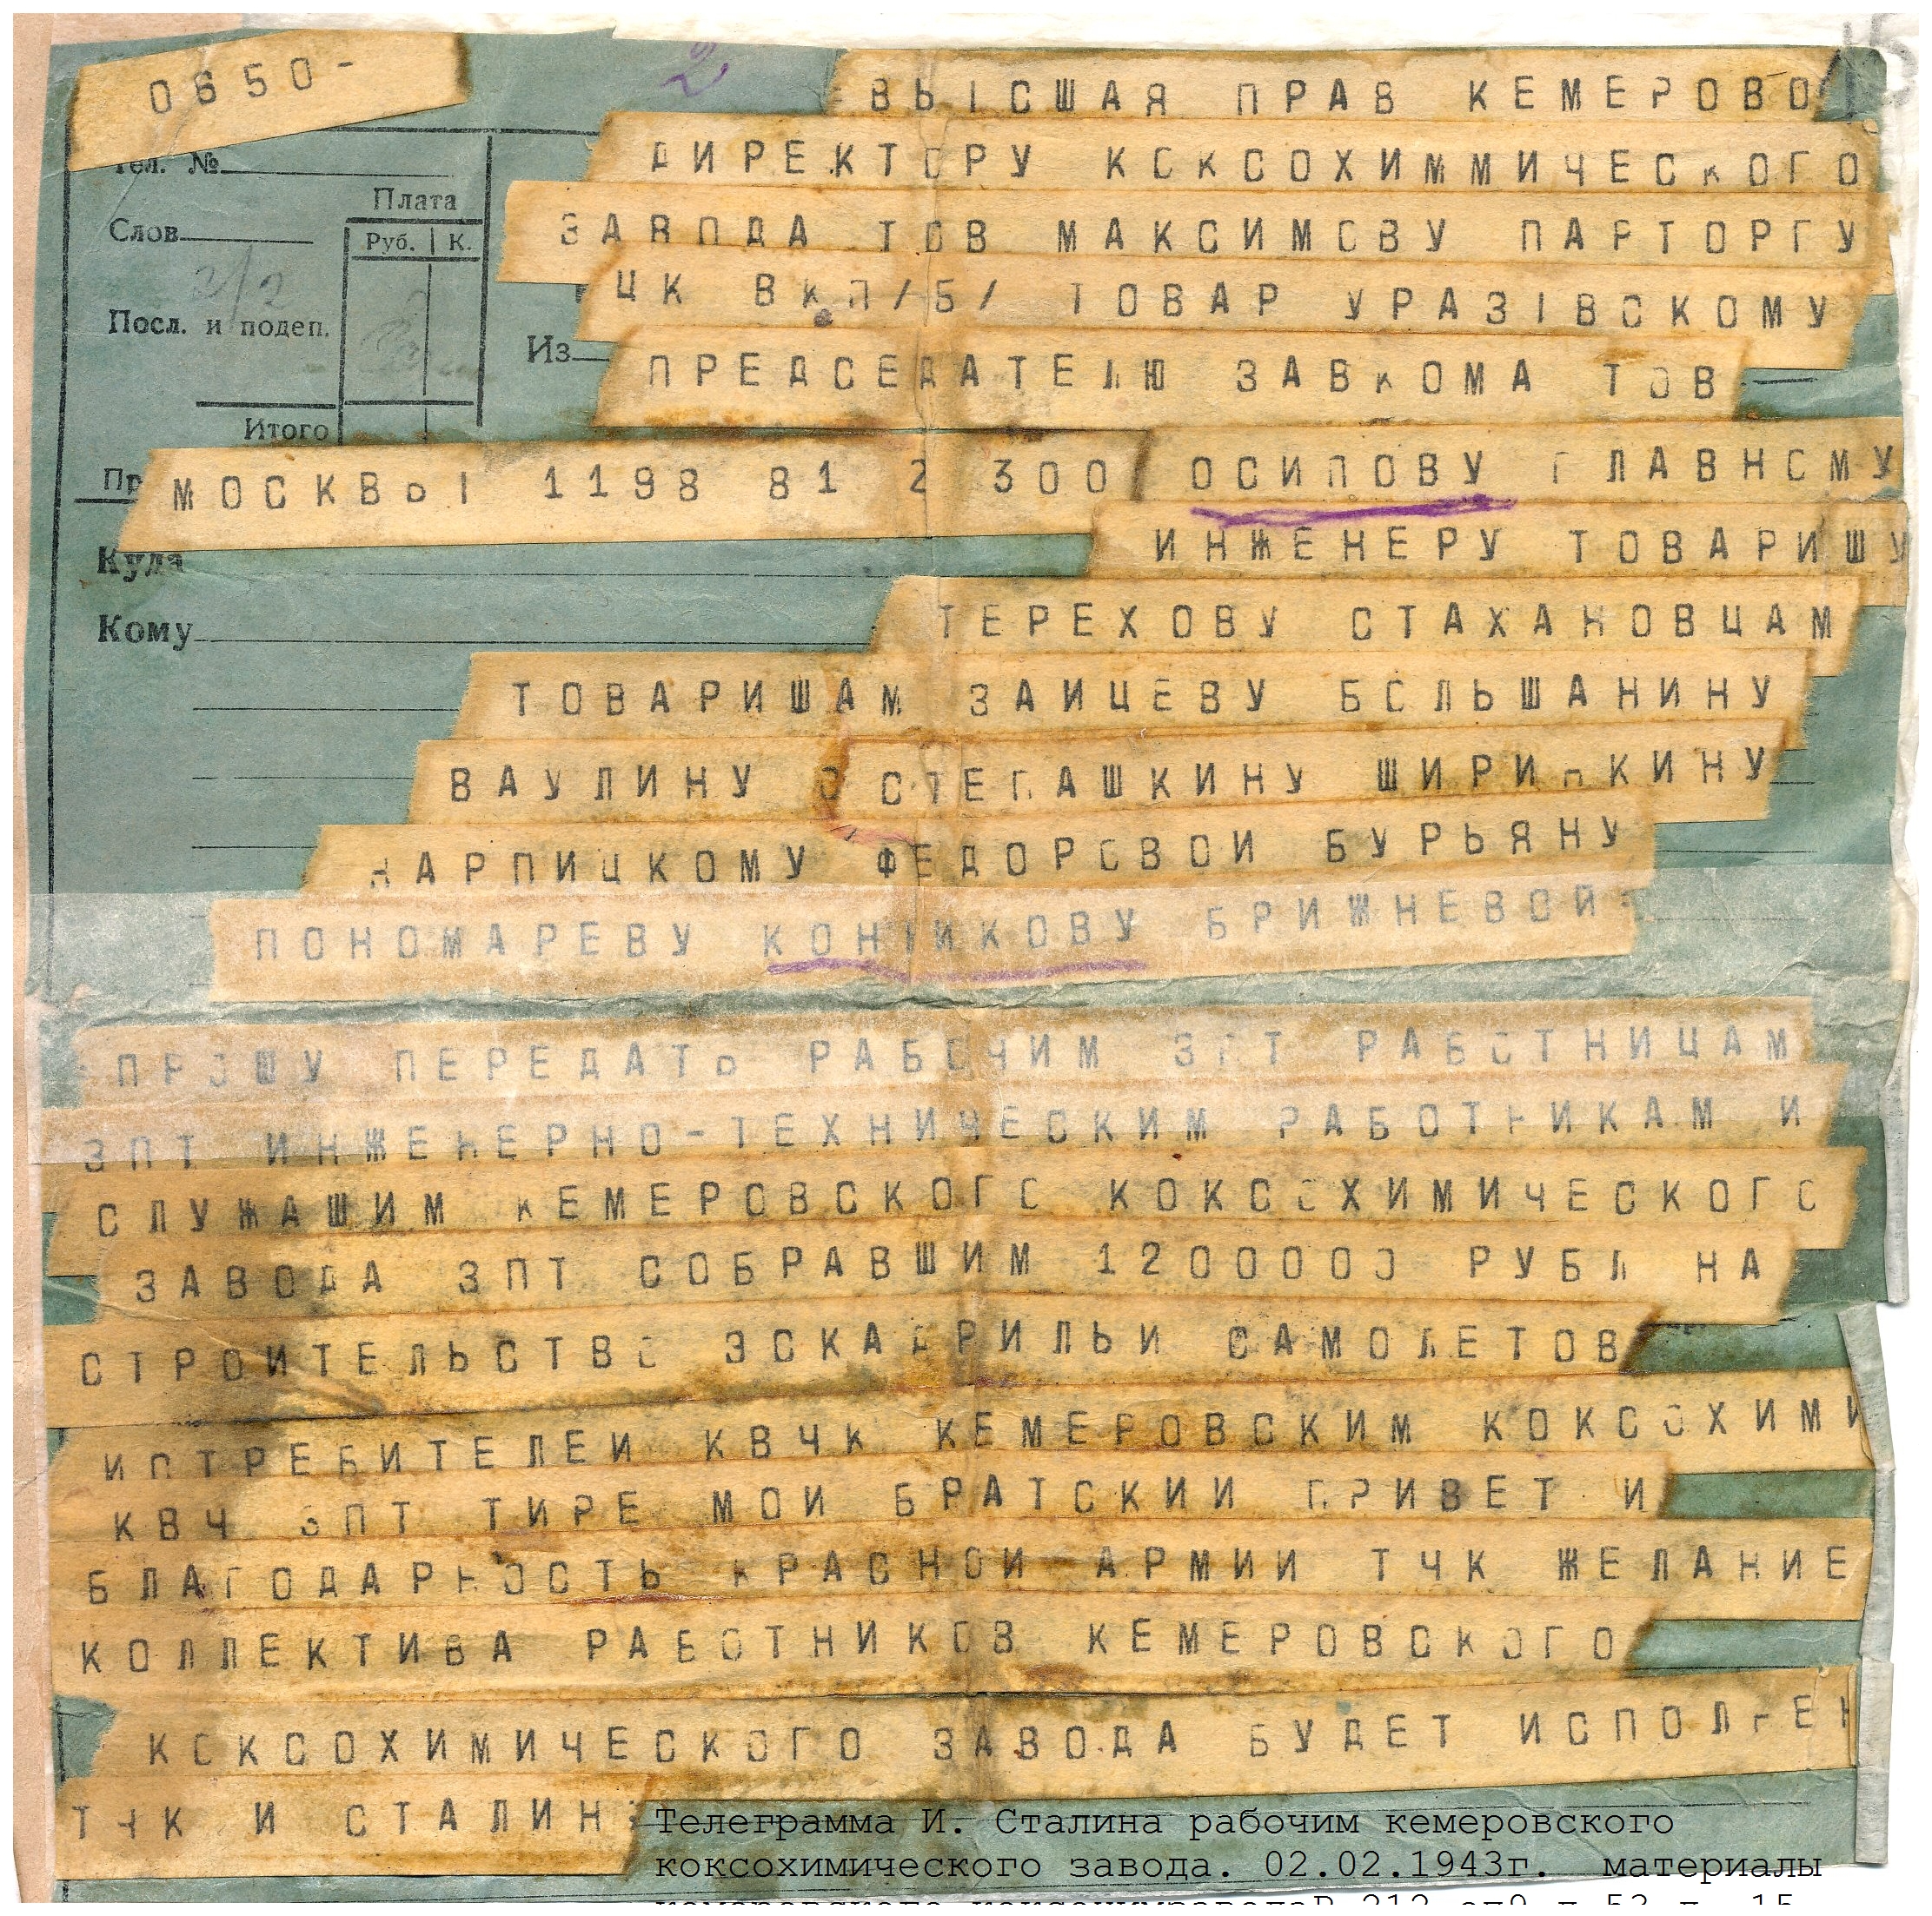 0650-
2
ВЫСШАЯ ПРАВ КЕМЕРОВО
ДИРЕКТОРУ КОКСОХИММИЧЕСКОГО
ЗАВОДА ТОВ МАКСИМОВУ ПАРТОРГУ
ЦК ВКП/Б/ ТОВАР УРАЗIВСКОМУ
ПРЕДСЕДАТЕЛЮ ЗАВКОМА ТОВ
Тел. №
Плата
Слов
Руб. К.
2/2
Посл. и подеп.
Из
Итого
Пр
МОСКВЫ 1198 81 2 300
ОСИПОВУ ГЛАВНОМУ
ИНЖЕНЕРУ ТОВАРИШУ
Куда
Кому
ТЕРЕХОВУ СТАХАНОВЦАМ
ТОВАРИШАМ ЗАИЦЕВУ БОЛЬШАНИНУ
ВАУЛИНУ СТЕПАШКИНУ ШИРИНКИНУ
КАРПИЦКОМУ ФЕДОРОВОИ БУРЬЯНУ
ПОНОМАРЕВУ КОНIИКОВУ БРИЖНЕВОЙ=
ПРОШУ ПЕРЕДАТЬ РАБОЧИМ ЗПТ РАБОТНИЦАМ
ЗПТ ИНЖЕНЕРНО-ТЕХНИЧЕСКИМ РАБОТНИКАМ И
СЛУЖАШИМ КЕМЕРОВСКОГО КОКСОХИМИЧЕСКОГО
ЗАВОДА ЗПТ СОБРАВШИМ 1200000 РУБЛ НА
СТРОИТЕЛЬСТВО ЭСКАДРИЛЬИ САМОЛЕТОВ
ИСТРЕБИТЕЛЕИ КВЧК КЕМЕРОВСКИМ КОКСОХИМИ
КВЧ ЗПТ ТИРЕ МОИ БРАТСКИИ ПРИВЕТ И
БЛАГОДАРНОСТЬ КРАСНОИ АРМИИ ТЧК ЖЕЛАНИЕ
КОЛЛЕКТИВА РАБОТНИКОВ КЕМЕРОВСКОГО
КОКСОХИМИЧЕСКОГО ЗАВОДА БУДЕТ ИСПОЛНЕН
ТЧК И СТАЛИН=
Телеграмма И. Сталина рабочим кемеровского
коксохимического завода. 02.02.1943г. материалы